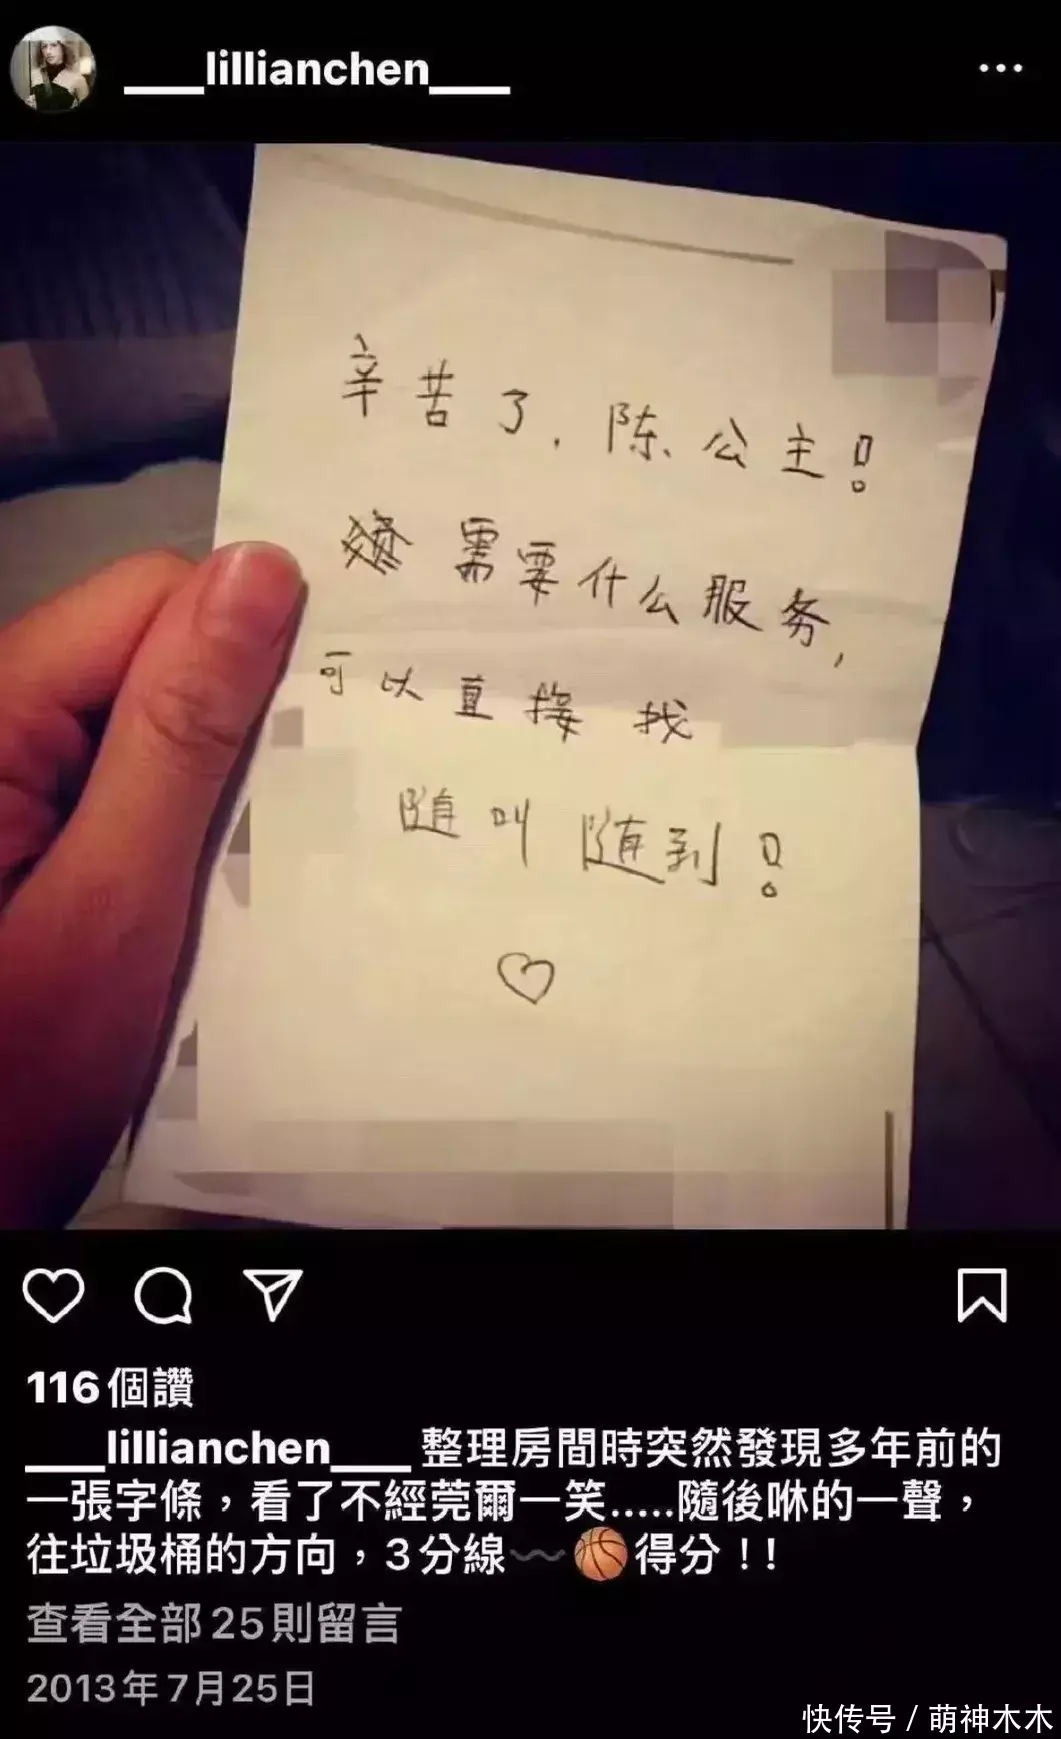 ___lillianchen___
辛苦了，陈公主！
需要什么服务，
可以直接找
随叫随到！
116個讚
___lillianchen___ 整理房間時突然發現多年前的
一張字條，看了不經莞爾一笑.....隨後咻的一聲，
往垃圾桶的方向，3分線〰️🏀得分！！
查看全部25則留言
2013年7月25日
快传号 / 萌神木木